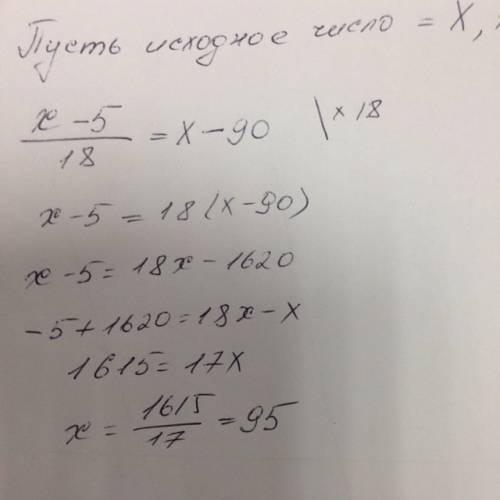 Пусть исходное число = X,
x - 5 / 18 = X - 90 | × 18
x - 5 = 18 (X - 90)
x - 5 = 18x - 1620
-5 + 1620 = 18x - X
1615 = 17X
x = 1615 / 17 = 95